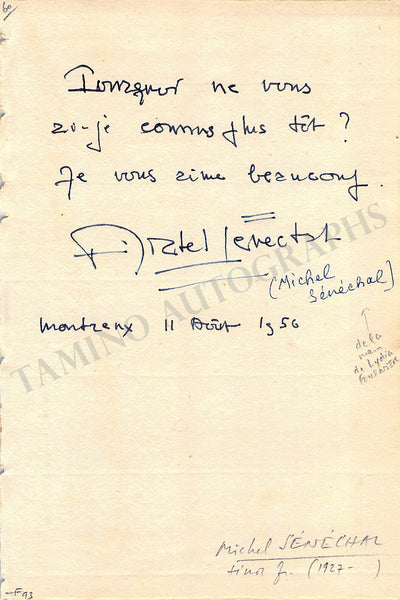 60
Pourquoi ne vous
ai-je connus plus tôt ?
Je vous aime beaucoup.
Michel Senechal
(Michel
Sénéchal)
Montreux 11 Août 1956
TAMINO AUTOGRAPHS
de la
main
de Lydia
Michel SÉNÉCHAL
ténor fr. (1927- )